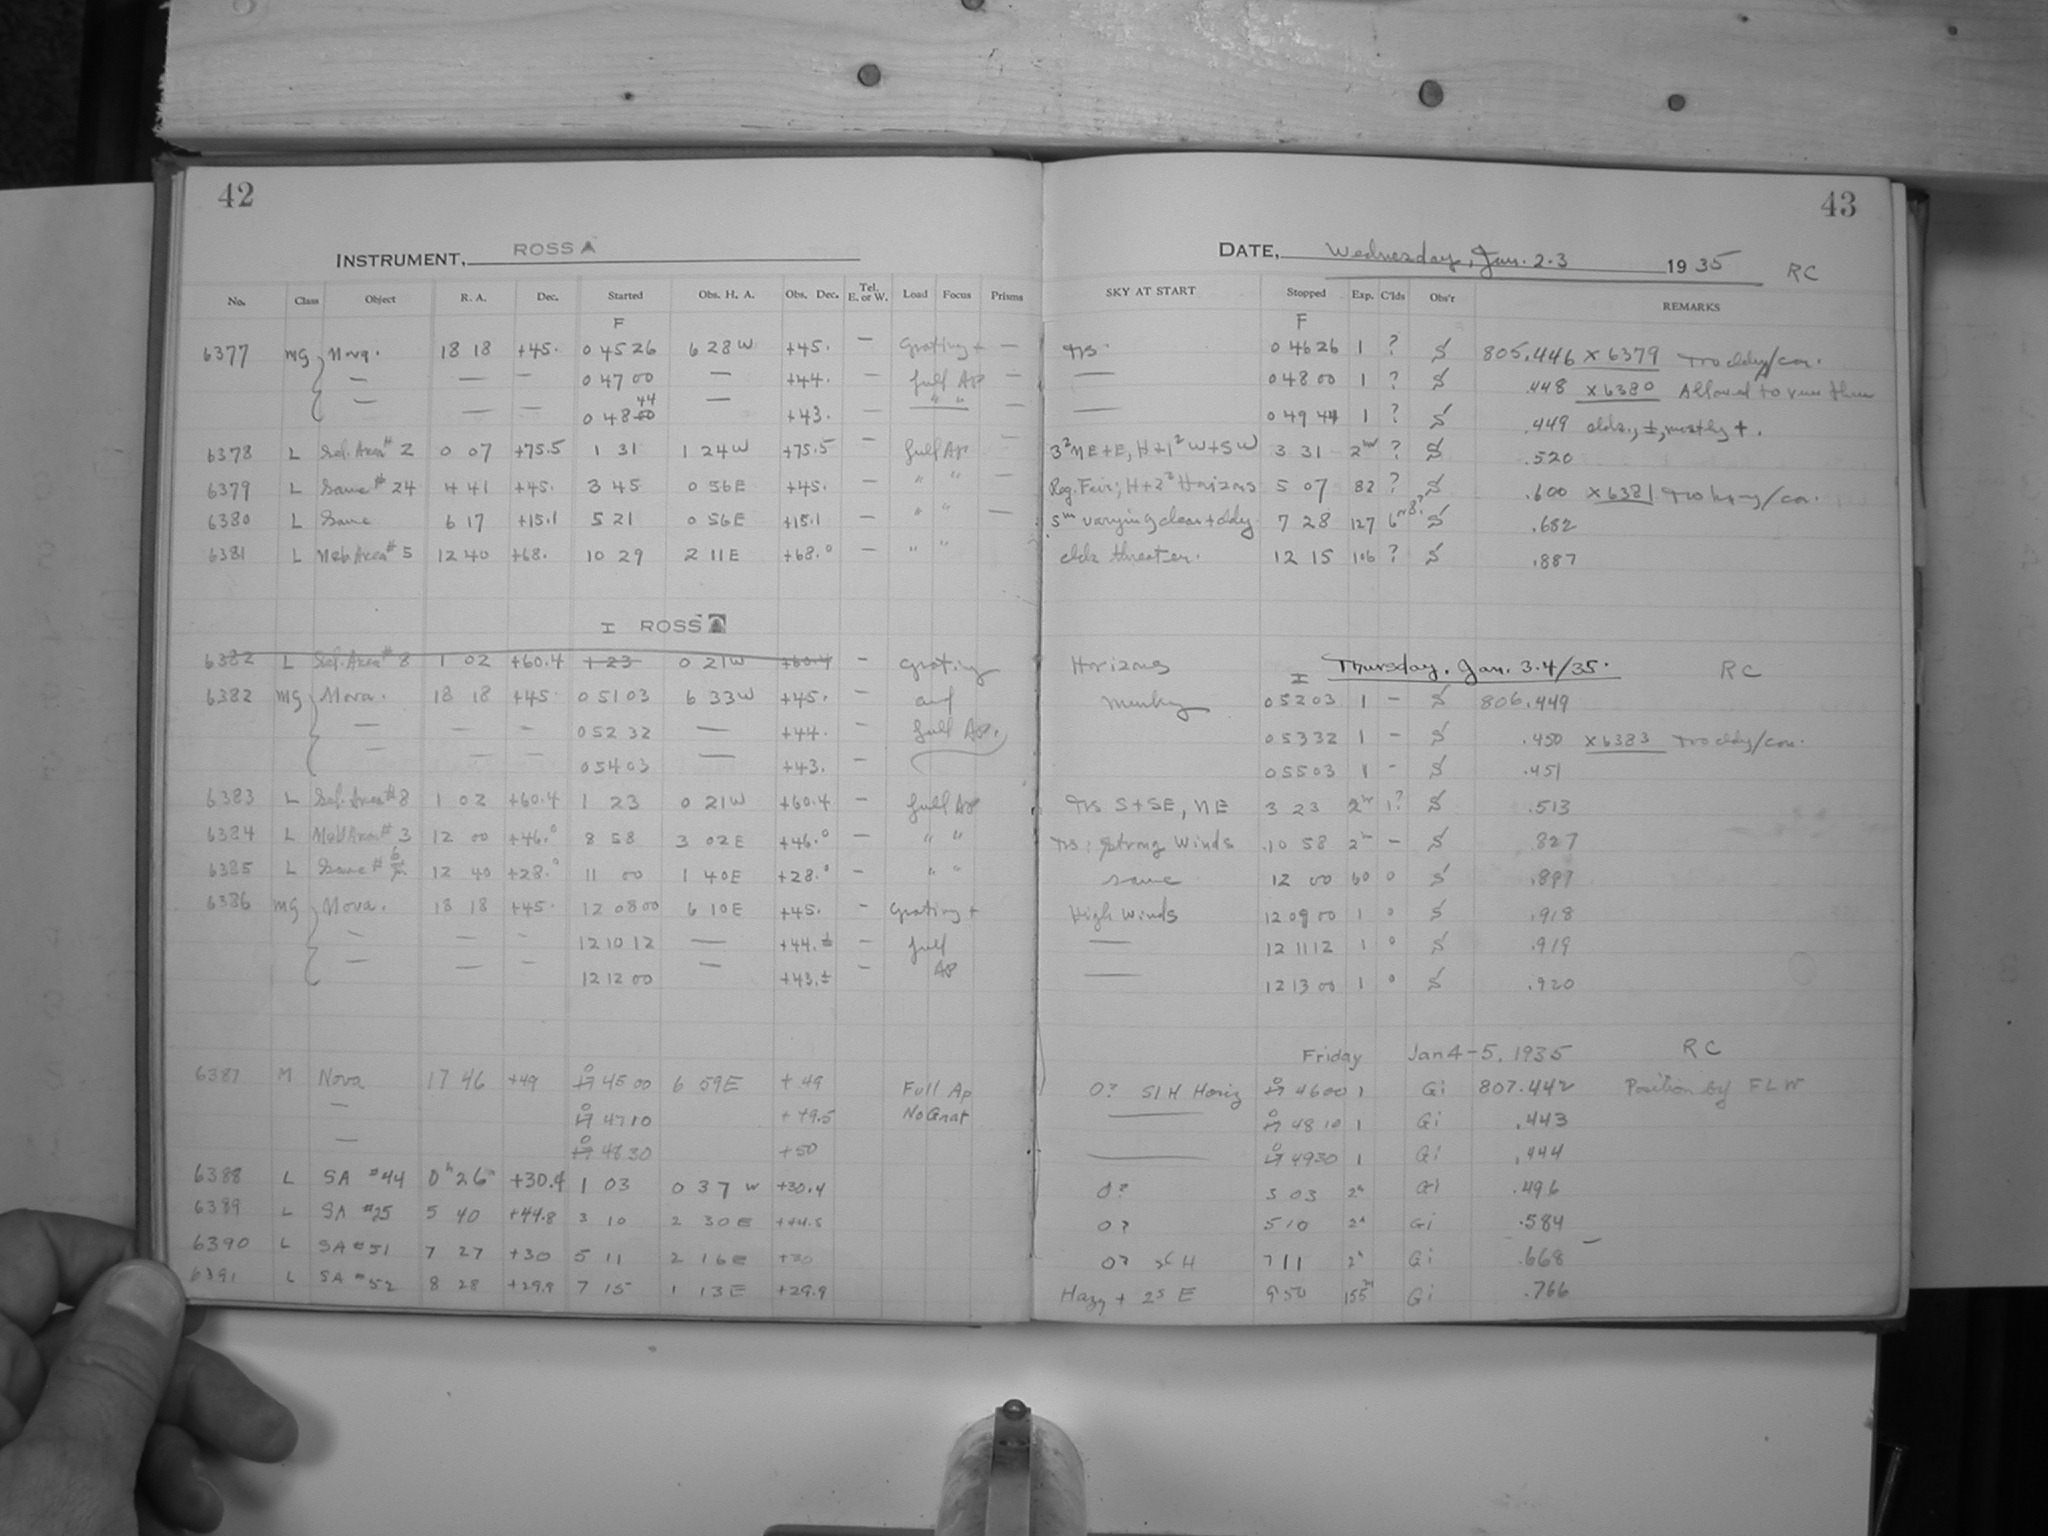 42
INSTRUMENT, ROSS A
No. Class Object R. A. Dec. Started Obs. H. A. Obs. Dec. Tel. E. or W. Load Focus Prisms
F
6377 MG Nova. 18 18 +45. 0 45 26 6 28 W +45. — Grating + —
— — — 0 47 00 — +44. — full Ap —
44
— — — 0 48 00 — +43. — " " —
6378 L Sel. Area # 2 0 07 +75.5 1 31 1 24 W +75.5 — full Ap —
6379 L Same # 24 4 41 +45. 3 45 0 56 E +45. — " " —
6380 L Same 6 17 +15.1 5 21 0 56 E +15.1 — " " —
6381 L Neb Area # 5 12 40 +68. 10 29 2 11 E +68.0 — " "
I ROSS
6382 L Sel. Area # 8 1 02 +60.4 1 23 0 21 W +60.4 — Grating
6382 MG Nova. 18 18 +45. 0 51 03 6 33 W +45. — and
— — — 0 52 32 — +44. — full Ap.
— — — 0 54 03 — +43. —
6383 L Sel. Area # 8 1 02 +60.4 1 23 0 21 W +60.4 — full Ap
6384 L Neb Area # 3 12 00 +46.0 8 58 3 02 E +46.0 — " "
6385 L Same # 6 12 40 +28.0 11 00 1 40 E +28.0 — " "
6386 MG Nova. 18 18 +45. 12 08 00 6 10 E +45. — Grating +
— — — 12 10 12 — +44.± — full
— — — 12 12 00 — +43.± — Ap
6387 M Nova 17 46 +49 0 17 45 00 6 59 E +49 Full Ap
— 0 17 47 10 +49.5 No Grat
— 0 17 48 30 +50
6388 L SA #44 0h 26m +30.4 1 03 0 37 W +30.4
6389 L SA #25 5 40 +44.8 3 10 2 30 E +44.8
6390 L SA #51 7 27 +30 5 11 2 16 E +30
6391 L SA #52 8 28 +29.9 7 15 1 13 E +29.9
43
DATE, Wednesday, Jan. 2-3 1935 RC
SKY AT START Stopped Exp. C'lds Obs'r REMARKS
F
0 46 26 1 ? S 805.446 x 6379
— 0 48 00 1 ? S .448 x 6380 Allowed to run thru
— 0 49 44 1 ? S .449 clds., ±, mostly +.
3² NE+E, H+1² W+SW 3 31 2hr ? S .520
Reg. Fair; H+2² Horizons 5 07 82 ? S .600 x 6381
5m varying clear + cldy 7 28 127 6 or 8? S .682
clds threaten. 12 15 106 ? S .887
Horizons Thursday. Jan. 3.4/35. RC
I
Murky 0 52 03 1 – S 806.449
0 53 32 1 – S .450 x 6383
0 55 03 1 – S .451
S+SE, NE 3 23 2hr 1? S .513
Strong Winds 10 58 2h – S .827
same 12 00 60 0 S .897
High Winds 12 09 00 1 0 S .918
— 12 11 12 1 0 S .919
— 12 13 00 1 0 S .920
Friday Jan 4-5, 1935 RC
0? Sl H Horiz 0 17 46 00 1 Gi 807.442 Position by FLW
— 0 17 48 10 1 Gi .443
— 0 17 49 30 1 Gi .444
0? 3 03 2h Gi .496
0? 5 10 2h Gi .584
0? H 7 11 2h Gi .668 –
Hazy + 2s E 9 50 155m Gi .766